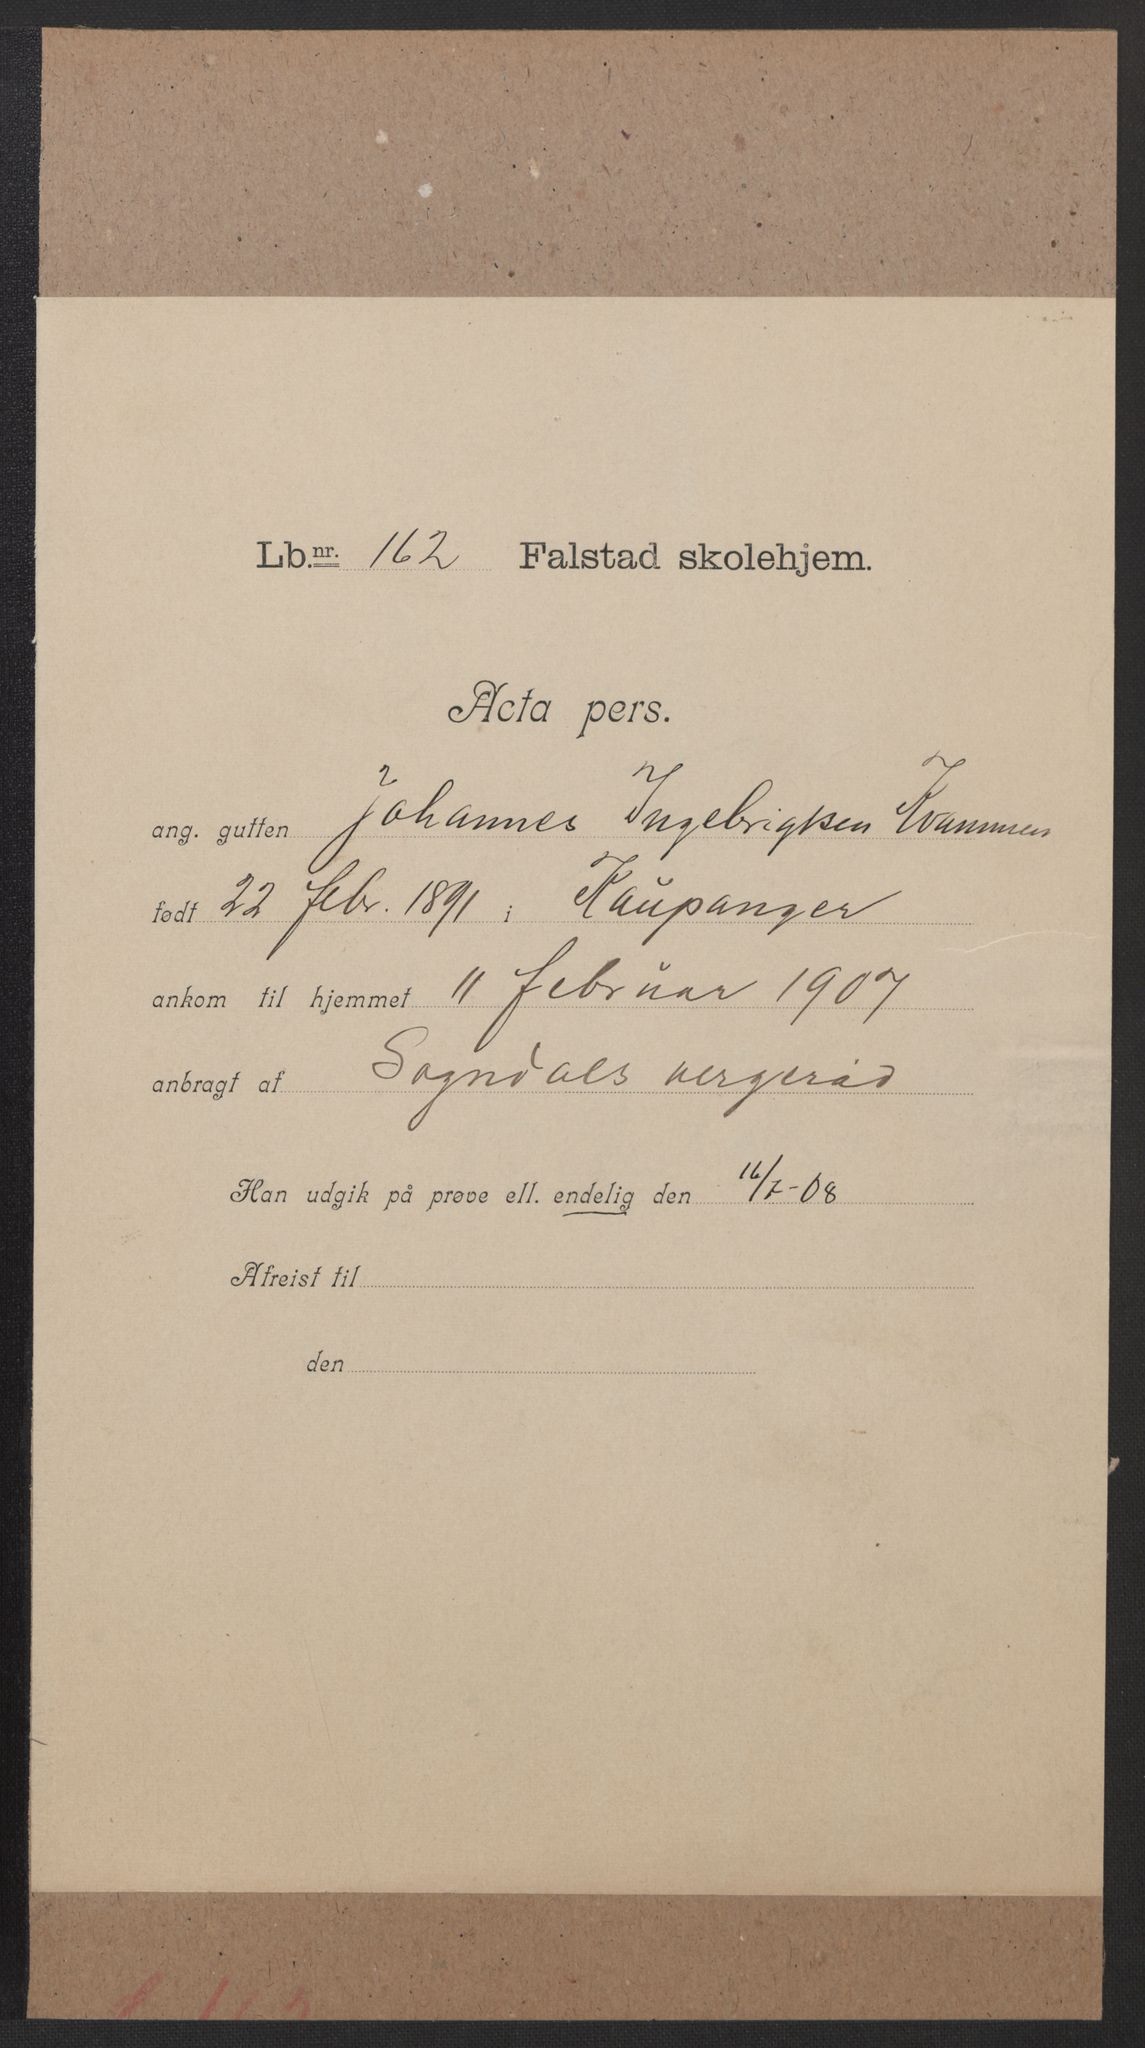 Lb.nr. 162 Falstad skolehjem.
Acta pers.
ang. gutten Johannes Ingebrigtsen Kvammen
født 22 febr. 1891 i Kaupanger
ankom til hjemmet 11 februar 1907
anbragt af Sogndals vergeråd
Han udgik på prøve ell. endelig den 16/7-08
Afreist til
den